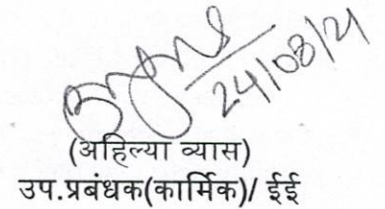 24/08/21
(अहिल्या व्यास)
उप.प्रबंधक(कार्मिक)/ ईई